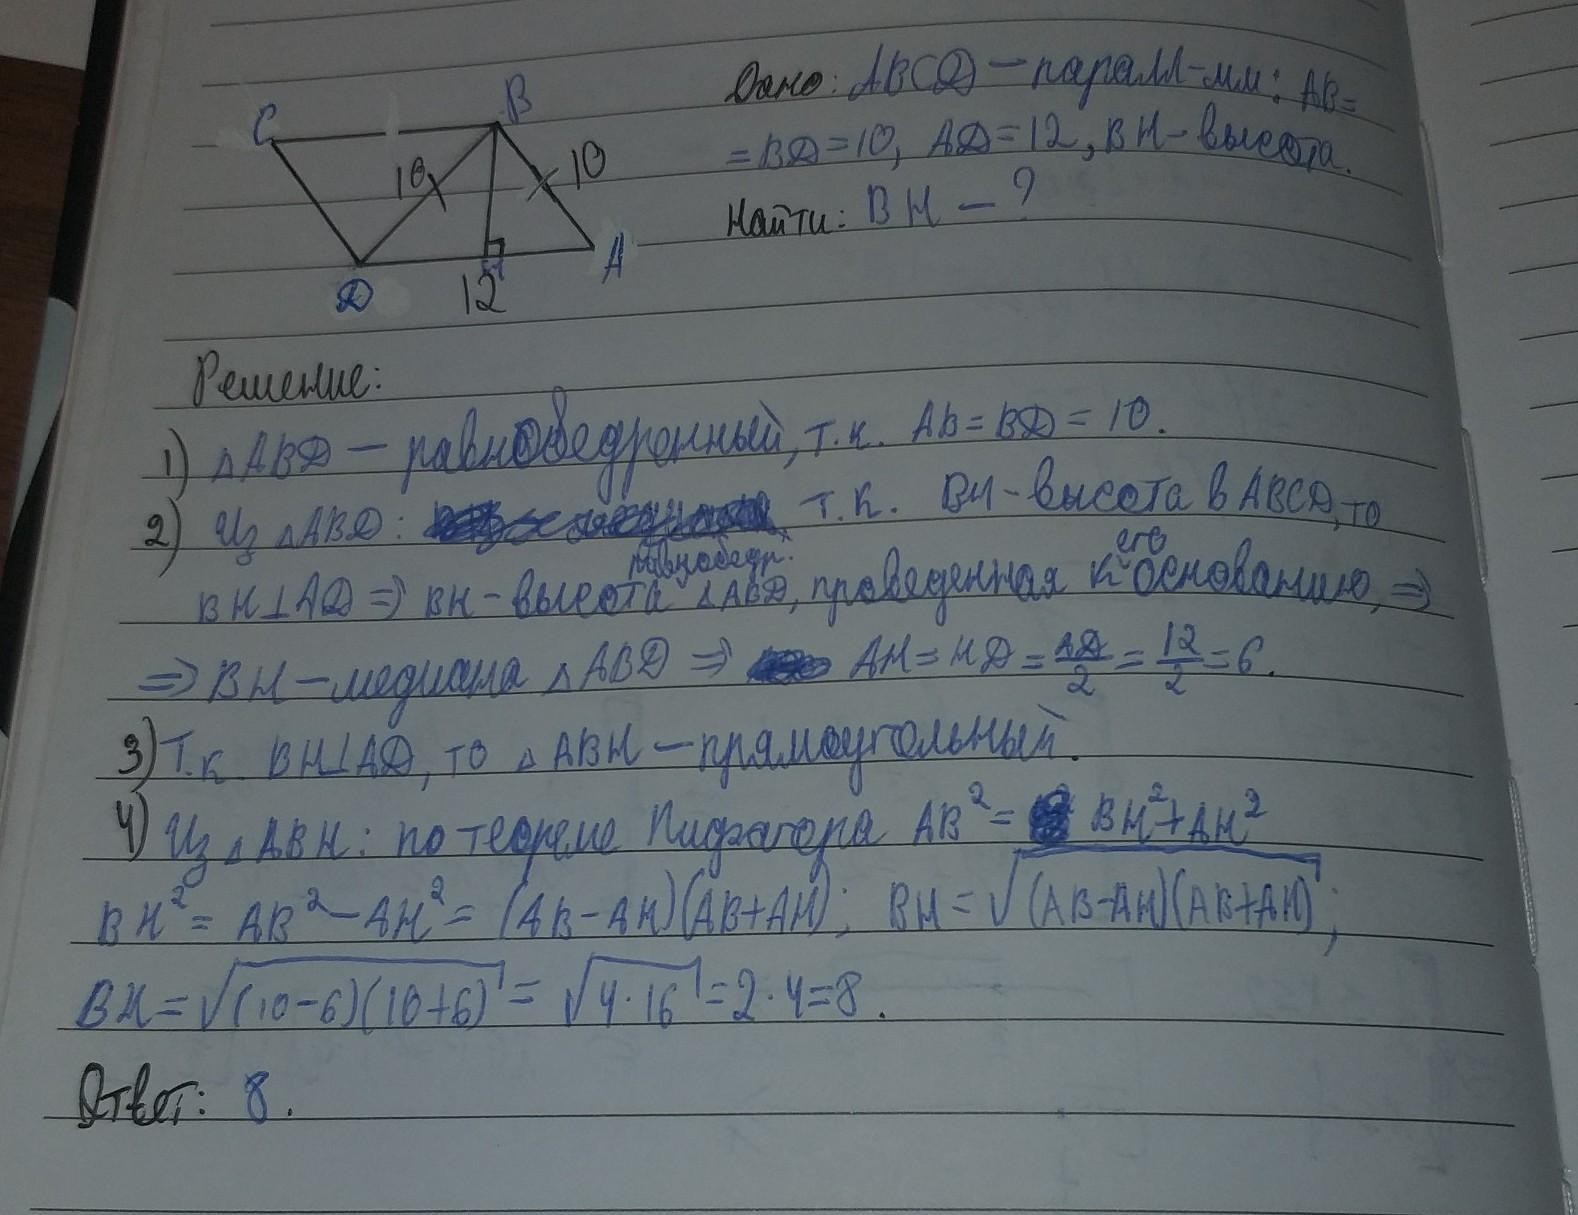 C
B
10
10
D
12
H
A
Дано: ABCD — паралл-мм; AB=
= BD = 10, AD = 12, BH - высота.
Найти: BH — ?
Решение:
1) △ABD — равнобедренный, т.к. AB = BD = 10.
2) Из △ABD: т.к. BH - высота в ABCD, то
BH⊥AD ⇒ BH - высота равнобедр. △ABD, проведенная к его основанию, ⇒
⇒ BH — медиана △ABD ⇒ AH = HD = AD/2 = 12/2 = 6.
3) Т.к BH⊥AD, то △ABH — прямоугольный.
4) Из △ABH: по теореме Пифагора AB² = BH² + AH²
BH² = AB² − AH² = (AB−AH)(AB+AH); BH = √(AB−AH)(AB+AH);
BH = √(10−6)(10+6) = √4·16 = 2·4 = 8.
Ответ: 8.